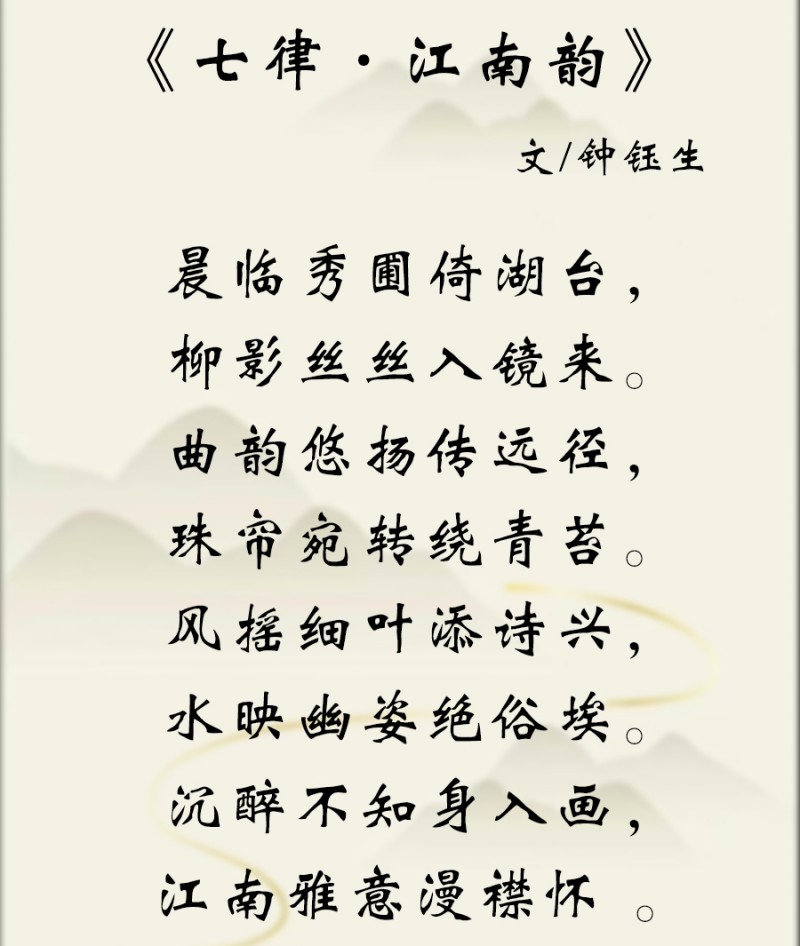 《七律·江南韵》
文/钟钰生
晨临秀圃倚湖台，
柳影丝丝入镜来。
曲韵悠扬传远径，
珠帘宛转绕青苔。
风摇细叶添诗兴，
水映幽姿绝俗埃。
沉醉不知身入画，
江南雅意漫襟怀 。